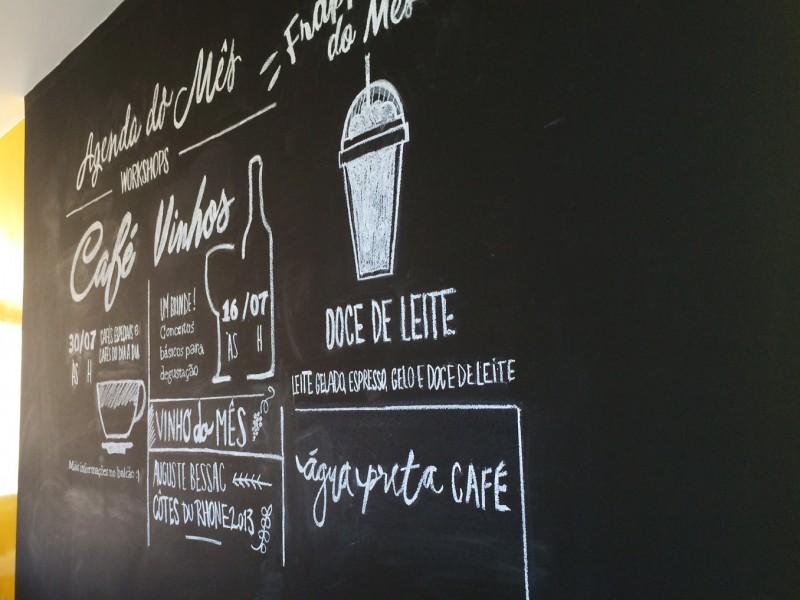 Agenda do Mês
WORKSHOPS
Café
30/07
ÀS H
CAFÉS ESPECIAIS E
CAFÉS DO DIA A DIA
Mais informações no balcão :)
Vinhos
UM BRINDE!
Conceitos
básicos para
degustação
16/07
ÀS H
VINHO do MÊS
AUGUSTE BESSAC
CÔTES DU RHONE 2013
do Mês
DOCE DE LEITE
LEITE GELADO, ESPRESSO, GELO E DOCE DE LEITE
água preta CAFÉ